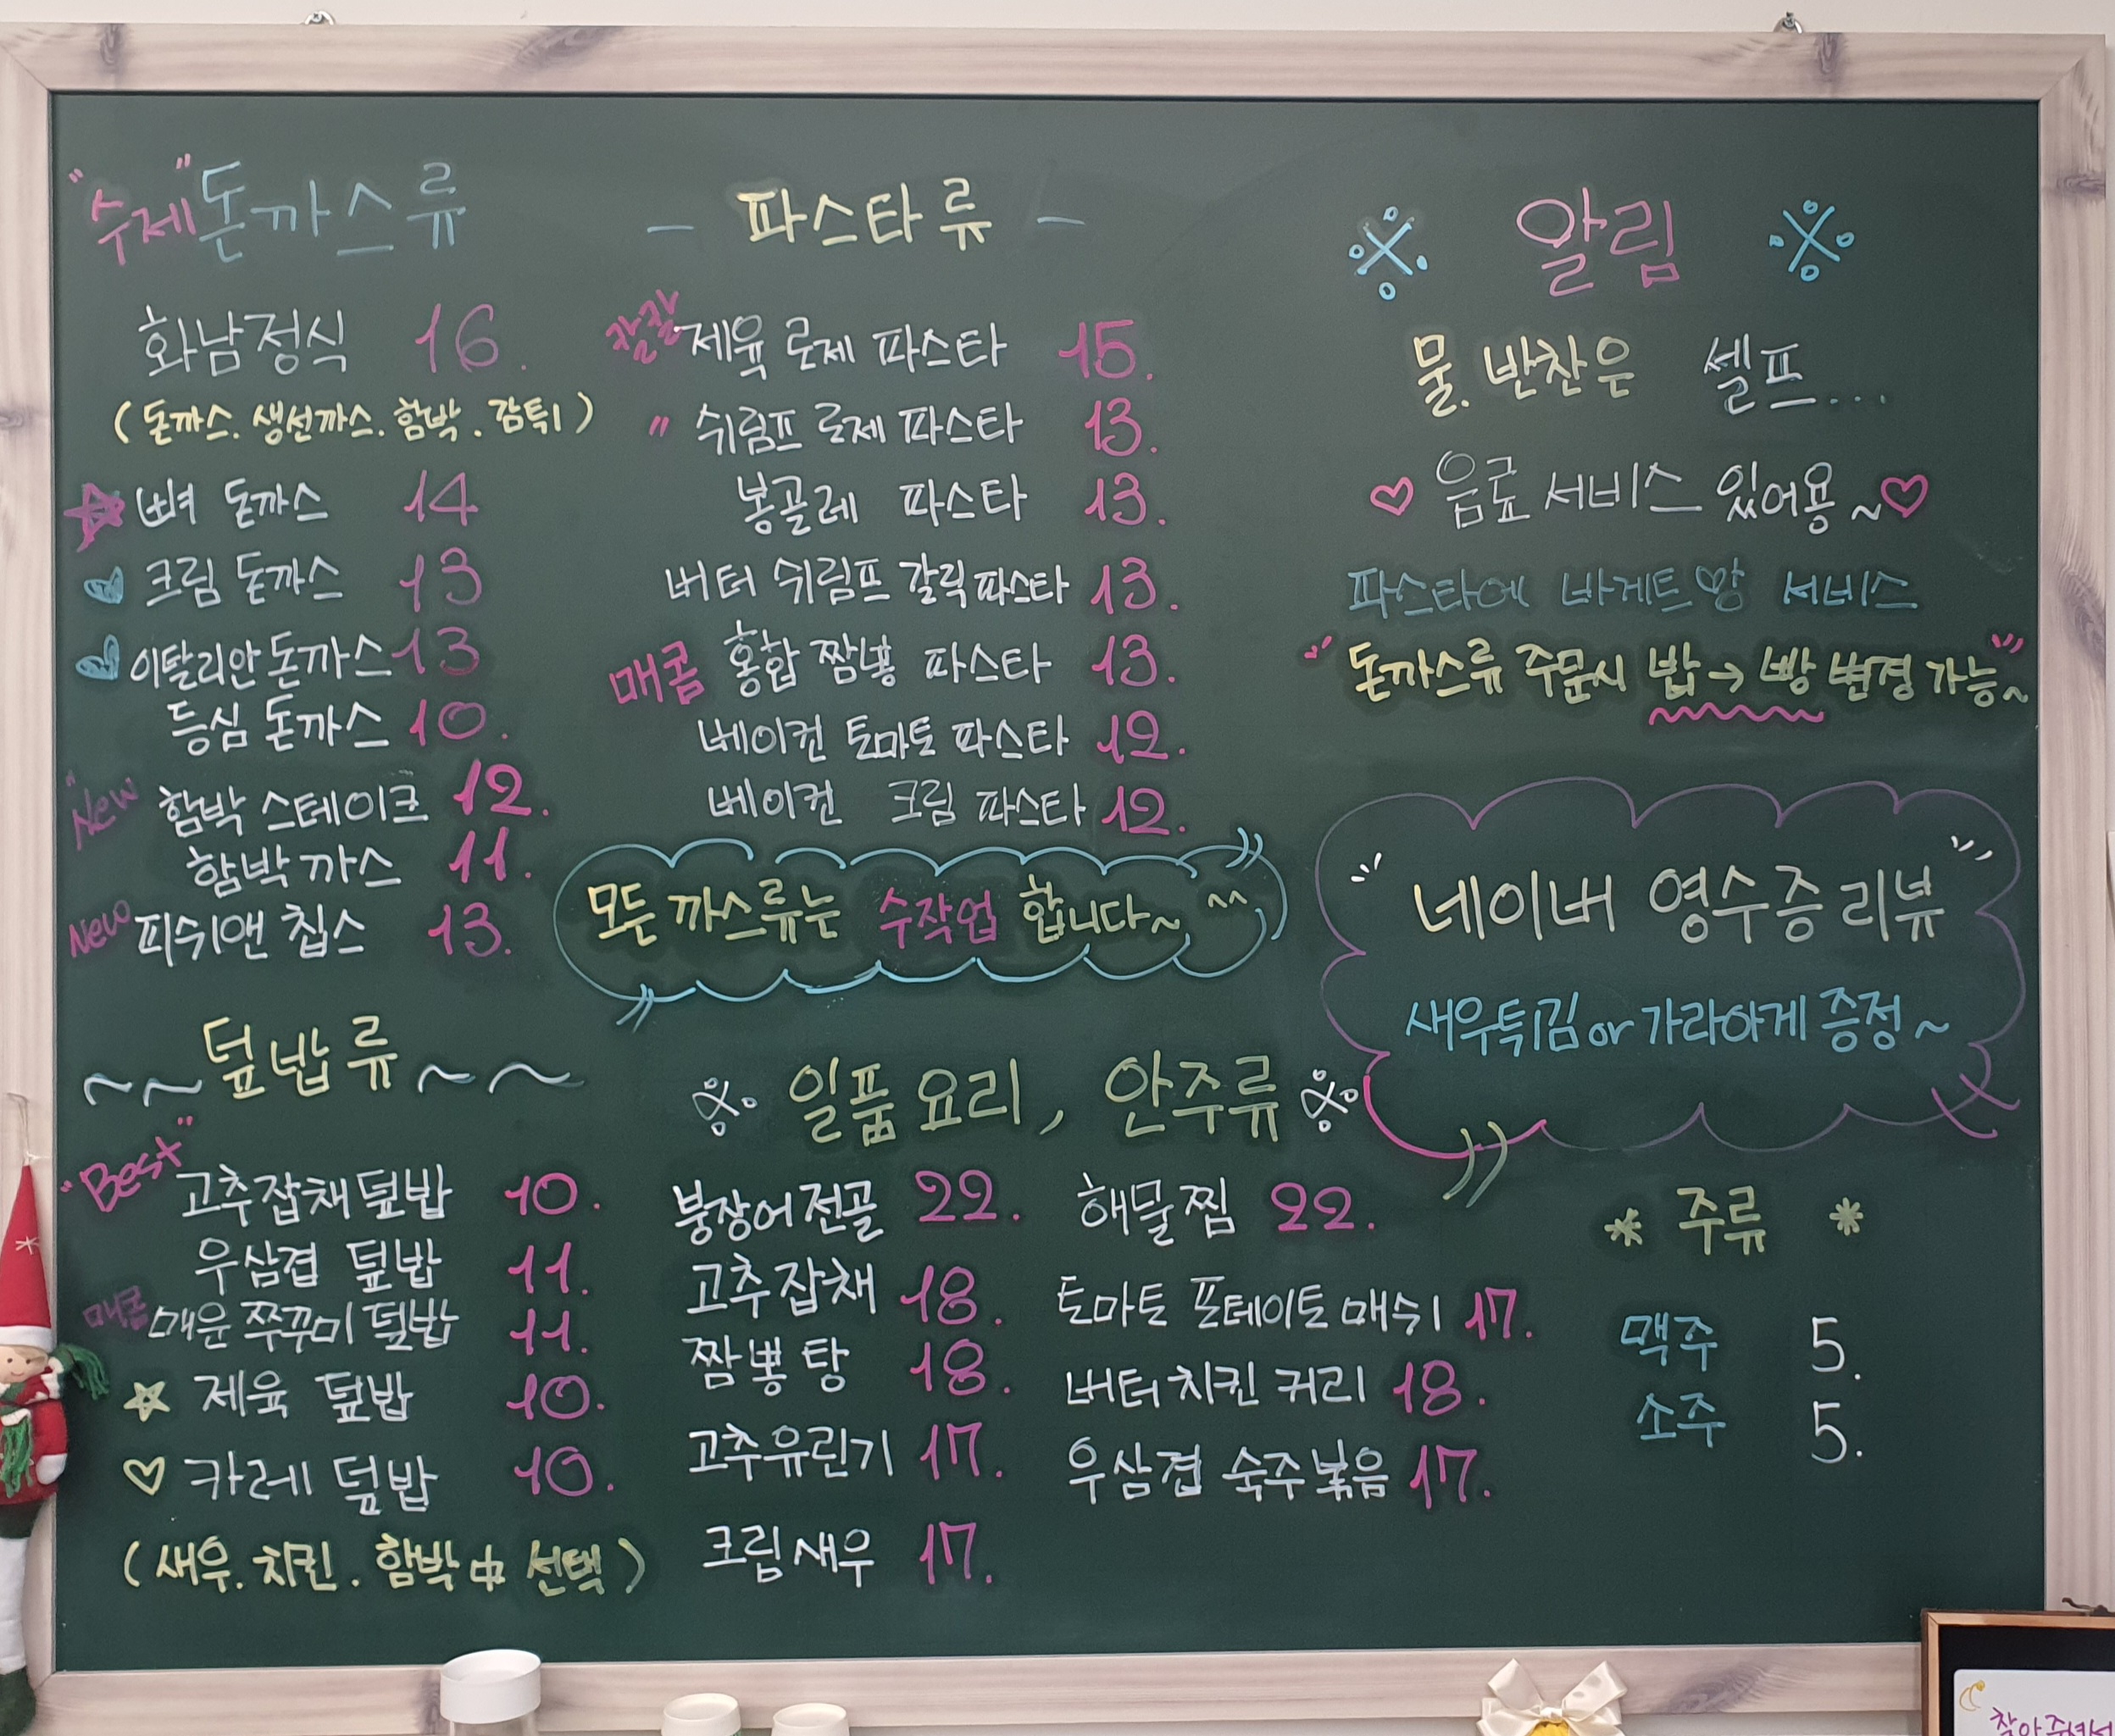 "수제" 돈까스류
화남정식 16.
(돈까스. 생선까스. 함박. 감튀)
뼈 돈까스 14
크림 돈까스 13
이탈리안 돈까스 13
등심 돈까스 10.
"New 함박 스테이크 12.
함박까스 11.
New 피쉬앤 칩스 13.
~~ 덮밥류 ~~
"Best" 고추잡채덮밥 10.
우삼겹 덮밥 11.
매콤 매운 쭈꾸미 덮밥 11.
☆ 제육 덮밥 10.
♡ 카레 덮밥 10.
(새우. 치킨. 함박 中 선택)
- 파스타류 -
제육 로제 파스타 15.
" 쉬림프 로제 파스타 13.
봉골레 파스타 13.
버터 쉬림프 갈릭 파스타 13.
매콤 홍합 짬뽕 파스타 13.
베이컨 토마토 파스타 12.
베이컨 크림 파스타 12.
모든 까스류는 수작업 합니다~ ^^
※ 일품요리, 안주류 ※
붕장어전골 22.
고추잡채 18.
짬뽕탕 18.
고추유린기 17.
크림새우 17.
해물찜 22.
토마토 포테이토 매쉬 17.
버터치킨 커리 18.
우삼겹 숙주볶음 17.
※ 알림 ※
물. 반찬은 셀프...
♡ 음료 서비스 있어용~♡
파스타에 바게트빵 서비스
돈까스류 주문시 밥→빵 변경 가능~
네이버 영수증 리뷰
새우튀김 or 가라아게 증정~
* 주류 *
맥주 5.
소주 5.